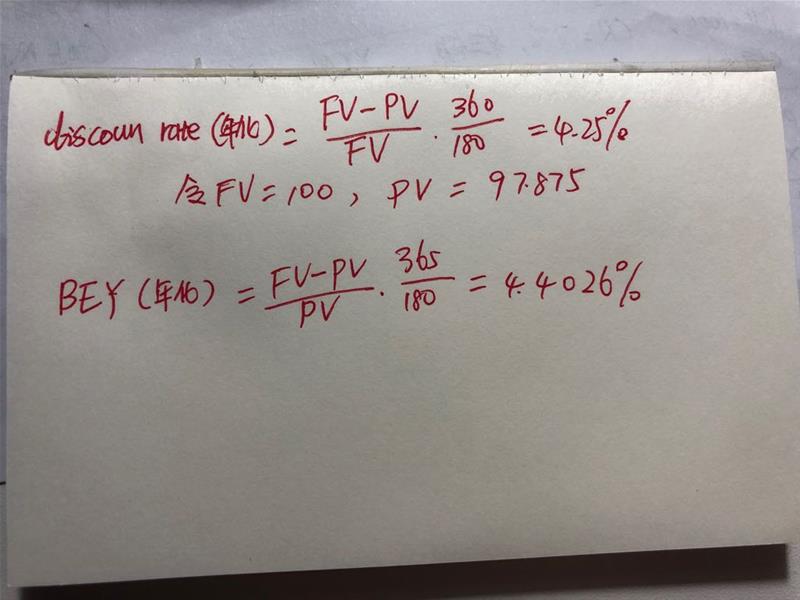 discoun rate (年化) = \frac{FV-PV}{FV} \cdot \frac{360}{180} = 4.25%
令FV=100, PV = 97.875
BEY (年化) = \frac{FV-PV}{PV} \cdot \frac{365}{180} = 4.4026%